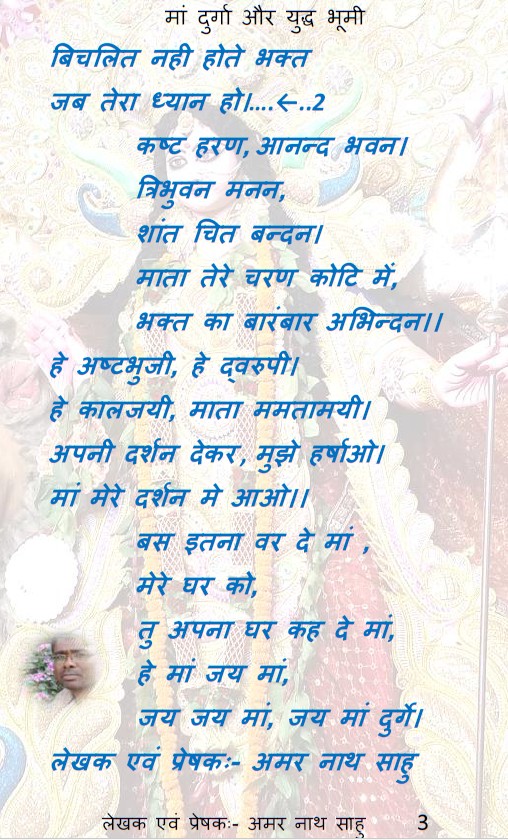 मां दुर्गा और युद्ध भूमी
बिचलित नही होते भक्त
जब तेरा ध्यान हो।....←..2
कष्ट हरण, आनन्द भवन।
त्रिभुवन मनन,
शांत चित बन्दन।
माता तेरे चरण कोटि में,
भक्त का बारंबार अभिन्दन।।
हे अष्टभुजी, हे द्वरुपी।
हे कालजयी, माता ममतामयी।
अपनी दर्शन देकर, मुझे हर्षाओ।
मां मेरे दर्शन मे आओ।।
बस इतना वर दे मां ,
मेरे घर को,
तु अपना घर कह दे मां,
हे मां जय मां,
जय जय मां, जय मां दुर्गे।
लेखक एवं प्रेषकः- अमर नाथ साहु
लेखक एवं प्रेषकः- अमर नाथ साहु 3